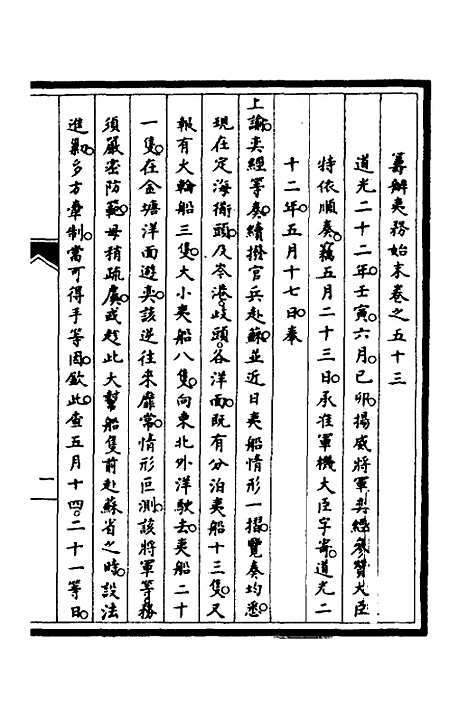 籌辦夷務始末卷之五十三
道光二十二年壬寅六月己卯揚威將軍奕經參贊大臣
特依順奏竊五月二十三日承准軍機大臣字寄道光二
十二年五月十七日奉
上諭奕經等奏續撥官兵赴蘇並近日夷船情形一摺覽奏均悉
現在定海衜頭及岑港岐頭各洋面既有分泊夷船十三隻又
報有大輪船三隻大小夷船八隻向東北外洋駛去夷船二十
一隻在金塘洋面遊奕該逆往來靡常情形叵測該將軍等務
須嚴密防範毋稍疏虞或趁此大幫船隻前赴蘇省之時設法
進剿多方牽制當可得手等因欽此查五月十四二十一等日
一